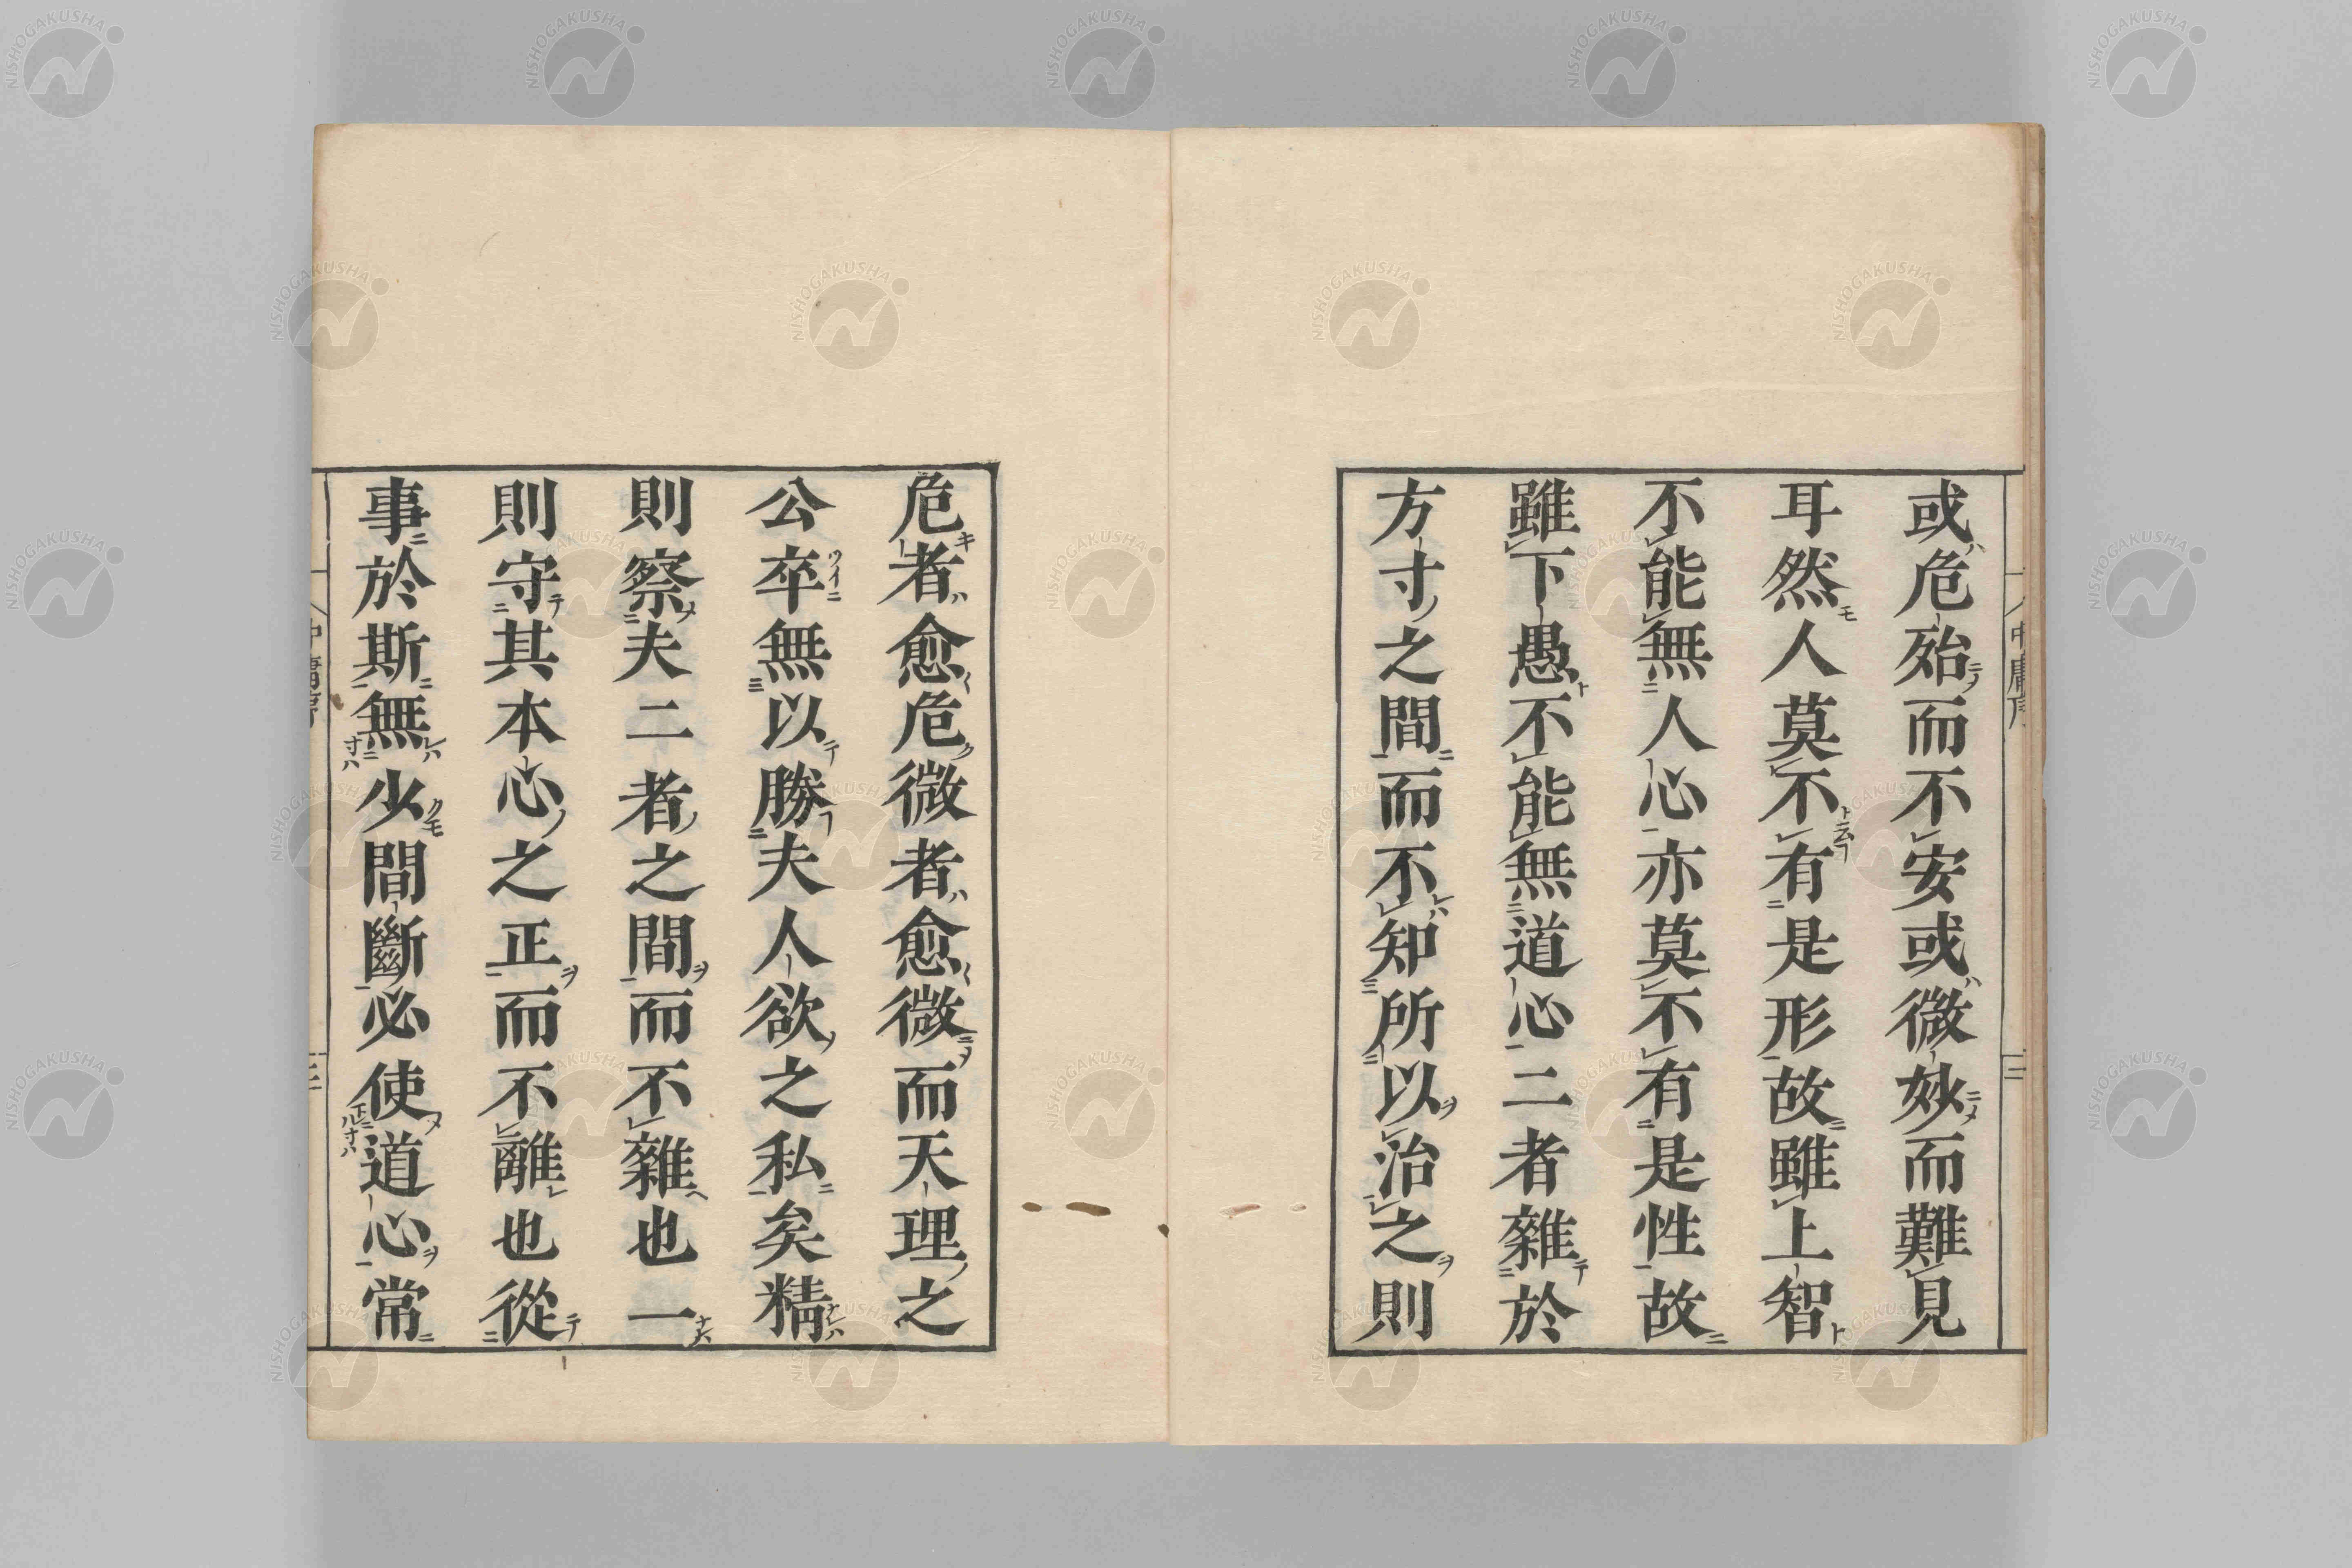 或危殆而不安或微妙而難見
耳然人莫不有是形故雖上智
不能無人心亦莫不有是性故
雖下愚不能無道心二者雜於
方寸之間而不知所以治之則
危者愈危微者愈微而天理之
公卒無以勝夫人欲之私矣精
則察夫二者之間而不雜也一
則守其本心之正而不離也從
事於斯無少間斷必使道心常